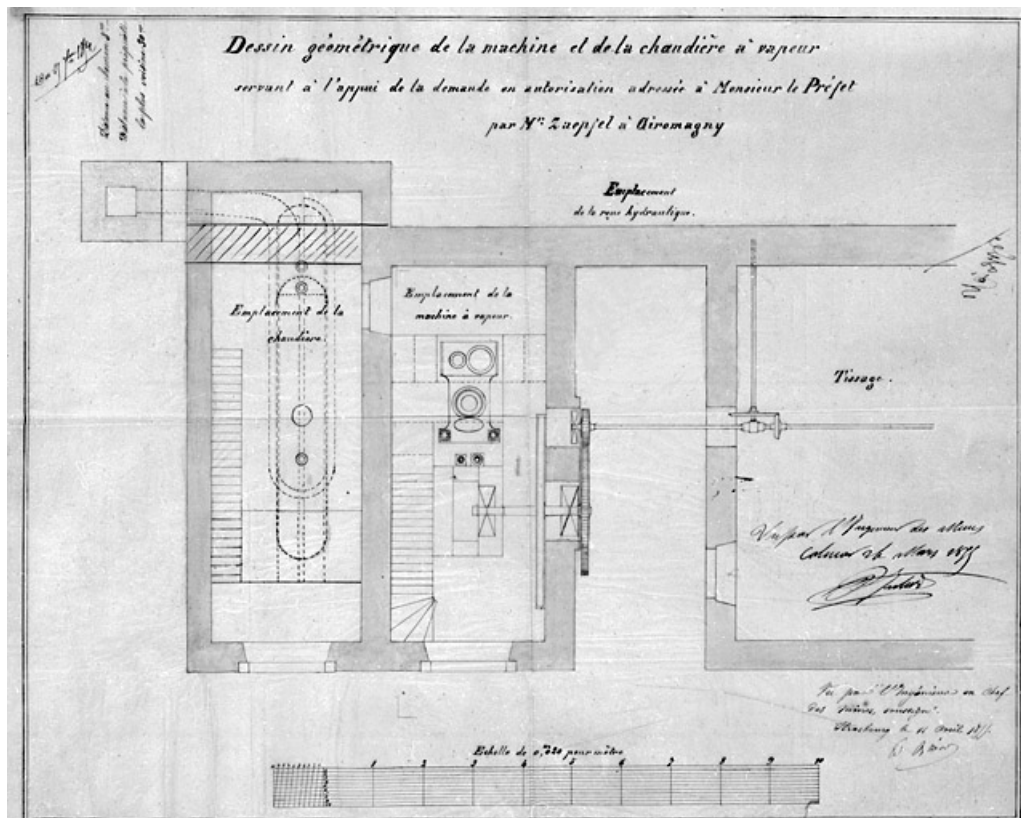 Dessin géométrique de la machine et de la chaudière à vapeur
servant à l'appui de la demande en autorisation adressée à Monsieur le Préfet
par Mr. Zaepfel à Giromagny
Emplacement
de la roue hydraulique.
Emplacement de la
chaudière.
Emplacement de la
machine à vapeur.
Tissage.
Vu par l'Ingénieur des Mines
Colmar 26 Mars
Vu par l'Ingénieur en Chef
des Mines soussigné.
Strasbourg le 11 avril
Echelle de 0,m020 pour mètre
1 2 3 4 5 6 7 8 9 10